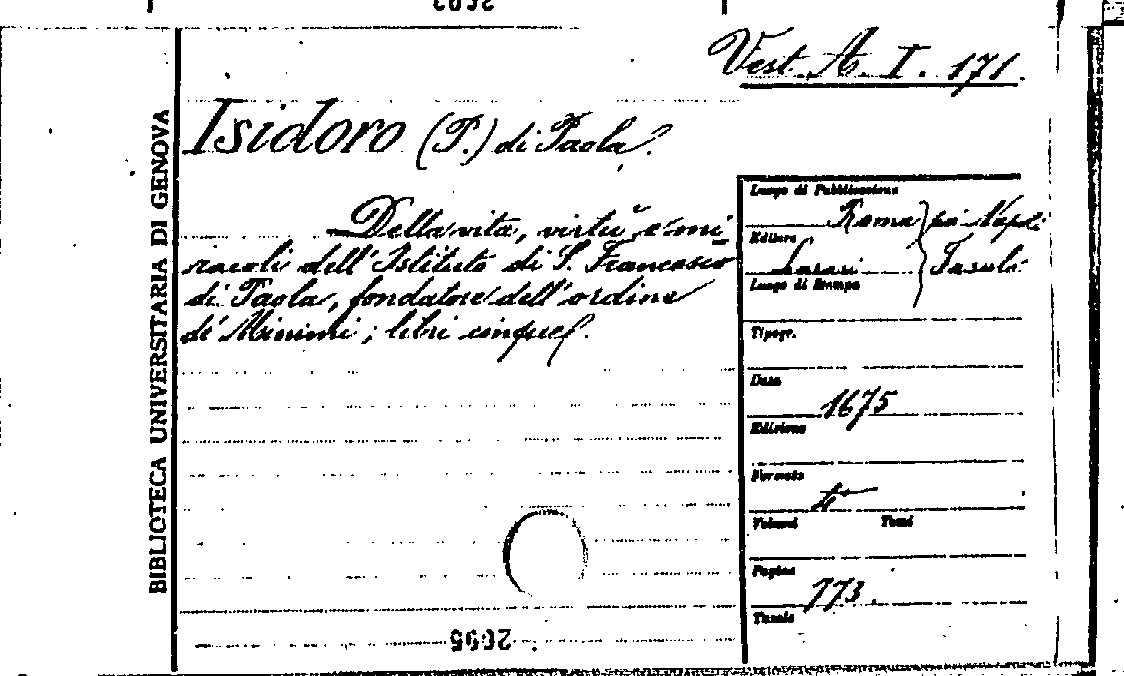 Vest. A. I. 171.
BIBLIOTECA UNIVERSITARIA DI GENOVA
Isidoro (P.) di Paola.
Della vita, virtù, e mi-
racoli dell'Istituto di S. Francesco
di Paola, fondatore dell'ordine
di Minimi; libri cinque.
Luogo di Pubblicazione
Roma } poi Napoli
Editore
Lazari } Fasulo
Luogo di Stampa
Tipogr.
Data
1675
Edizione
Formato
4°
Volumi Tomi
Pagine
773.
Tavole
2095